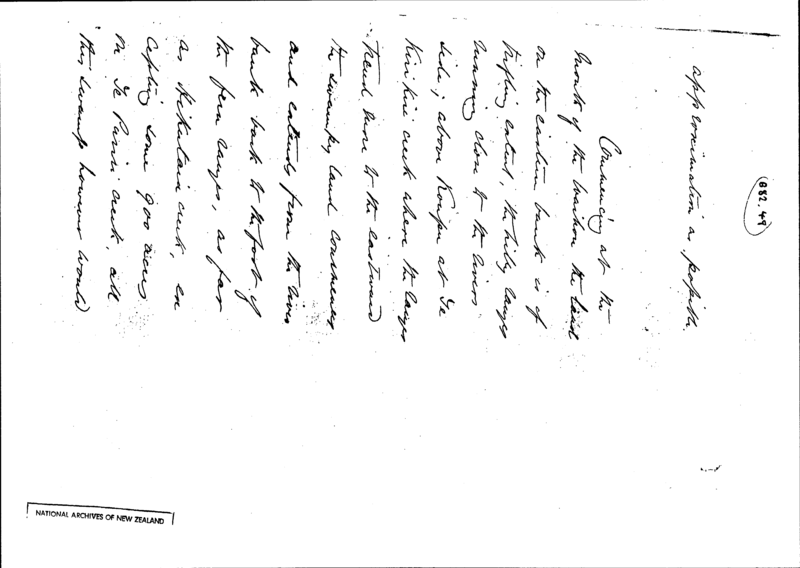 882.49
approximation as possible.
Commencing at the
mouth of the Waihou the land
on the eastern bank is of
trifling extent, the hilly ranges
running close to the river
side; above Kopu at Te
Kirikiri creek where the ranges
trend more to the eastward
the swampy land commences
and extends from the river
bank back to the foot of
the fern ranges, as far
as Hikutaia creek, ex
cepting some 900 acres
on Te Puriri creek, all
this swamp however would
NATIONAL ARCHIVES OF NEW ZEALAND